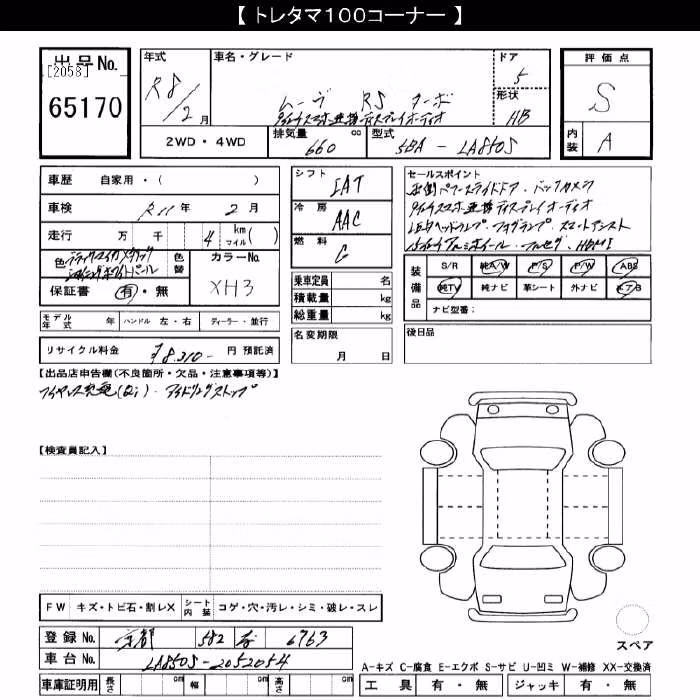 【 トレタマ100コーナー 】
出品No.
[2058]
65170
年式
R8/2 月
車名・グレード
ムーヴ RS ターボ
ダイハツスマホ連携ディスプレイオーディオ
ドア
5
形状
HB
評価点
S
内装
A
2WD・4WD
排気量
660
cc
型式
5BA - LA850S
車歴 自家用・( )
車検 R11年 2月
走行 万 千 4 km マイル ( )
色
ブラックマイカメタリック
シャイニングホワイトパール
色替
カラーNo.
XH3
保証書 有・無
シフト
IAT
冷房
AAC
燃料
G
乗車定員 名
積載量 kg
総重量 kg
セールスポイント
両側パワースライドドア・バックカメラ
ダイハツスマホ連携ディスプレイオーディオ
LEDヘッドランプ・フォグランプ・スマートアシスト
15インチアルミホイール・フルセグ・HDMI
装備品
S/R 純A/W P/S P/W ABS
純TV 純ナビ 革シート 外ナビ エアB
ナビ型番:
モデル年式 年 ハンドル 左・右 ディーラー・並行
名変期限
月 日
後日品
リサイクル料金 ¥8,310- 円 預託済
【出品店申告欄(不良箇所・欠品・注意事項等)】
ワイヤレス充電(Qi)・アイドリングストップ
【検査員記入】
FW キズ・トビ石・割レX シート内装 コゲ・穴・汚レ・シミ・破レ・スレ
登録No. 京都 582 6763
車台No. LA850S-2052054
車庫証明用 長さ cm 幅 cm 高さ cm
スペア
A−キズ C−腐食 E−エクボ S−サビ U−凹ミ W−補修 XX−交換済
工具 有・無 ジャッキ 有・無